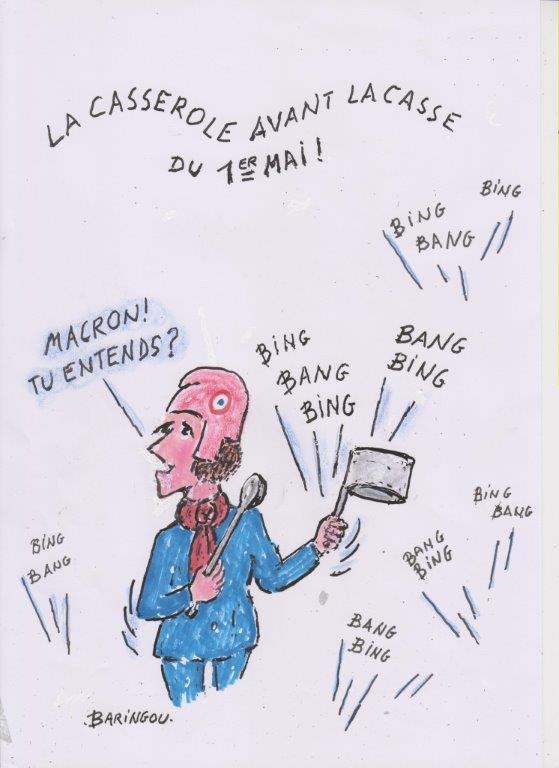 LA CASSEROLE AVANT LA CASSE
DU 1ER MAI!
BING
BING
BANG
MACRON!
TU ENTENDS?
BING
BANG
BING
BANG
BING
BING
BANG
BING
BANG
BANG
BING
BANG
BING
BARINGOU.